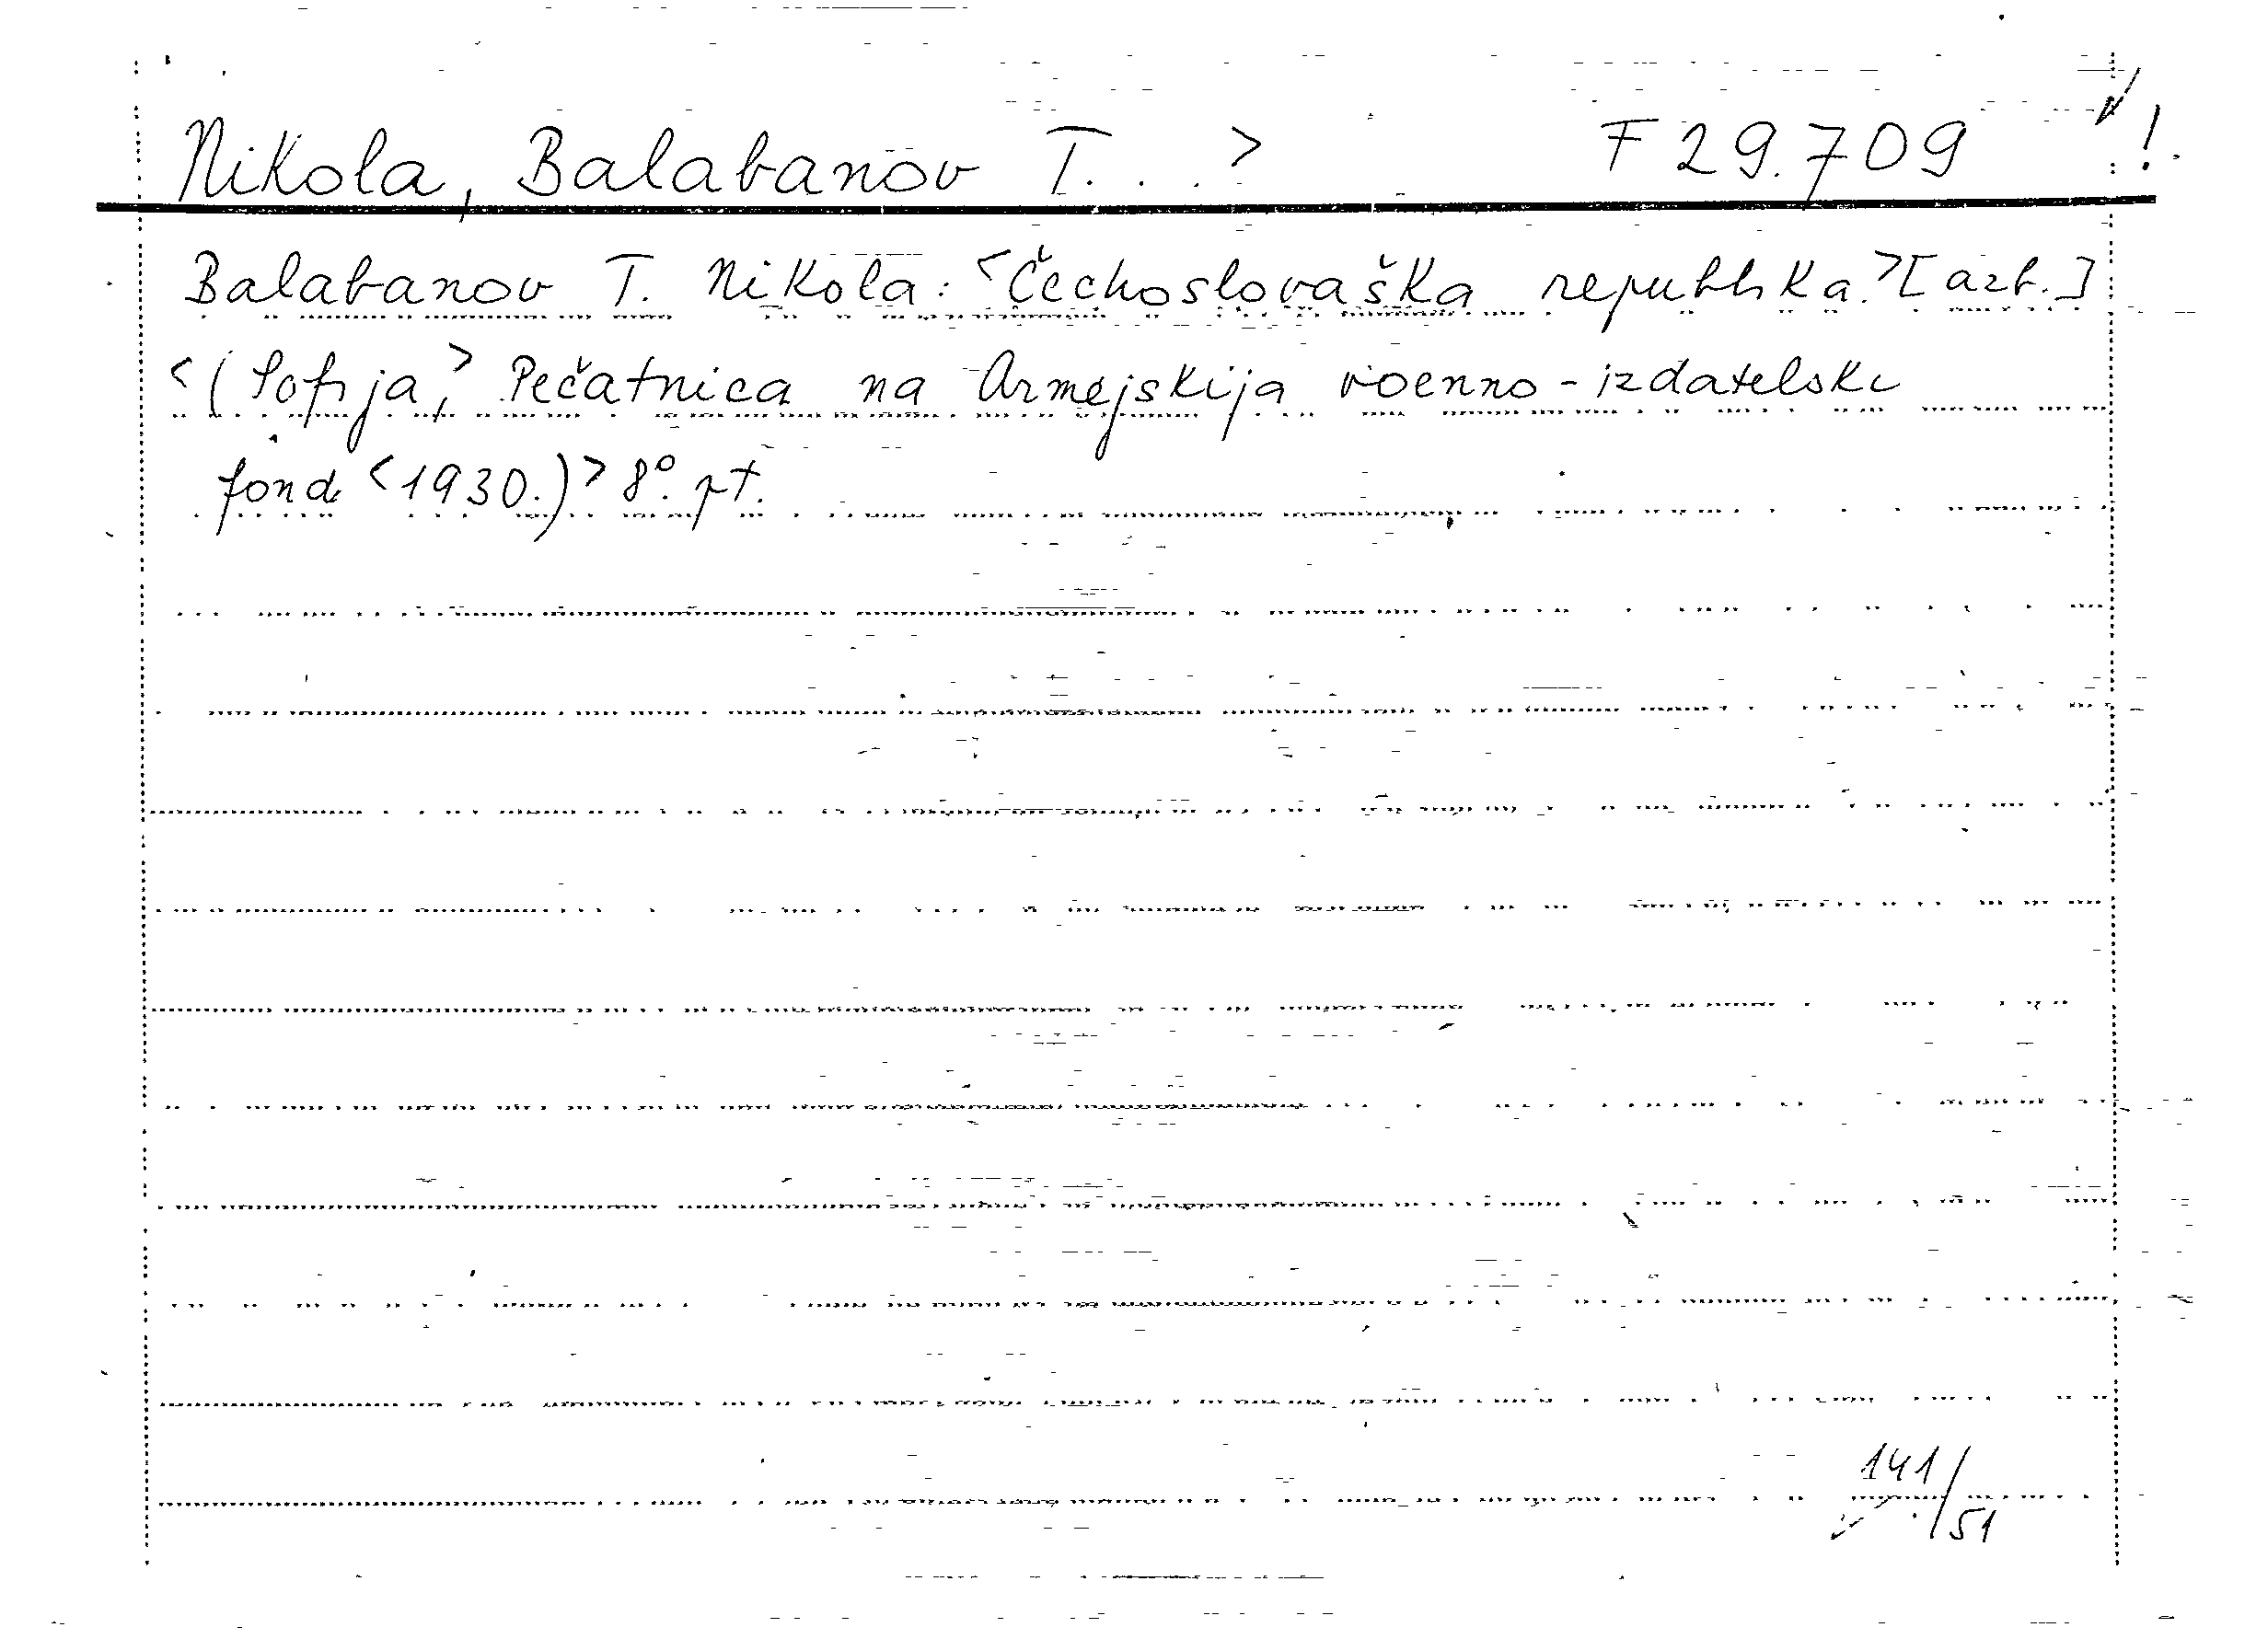 Nikola, Balabanov T. . . > F 29.709 !
Balabanov T. Nikola: <Čechoslovaška republika.> [azb.]
<(Sofija,> Pečatnica na Armejskija voenno-izdatelski
fond <1930.)> 8°. pt.
141/51